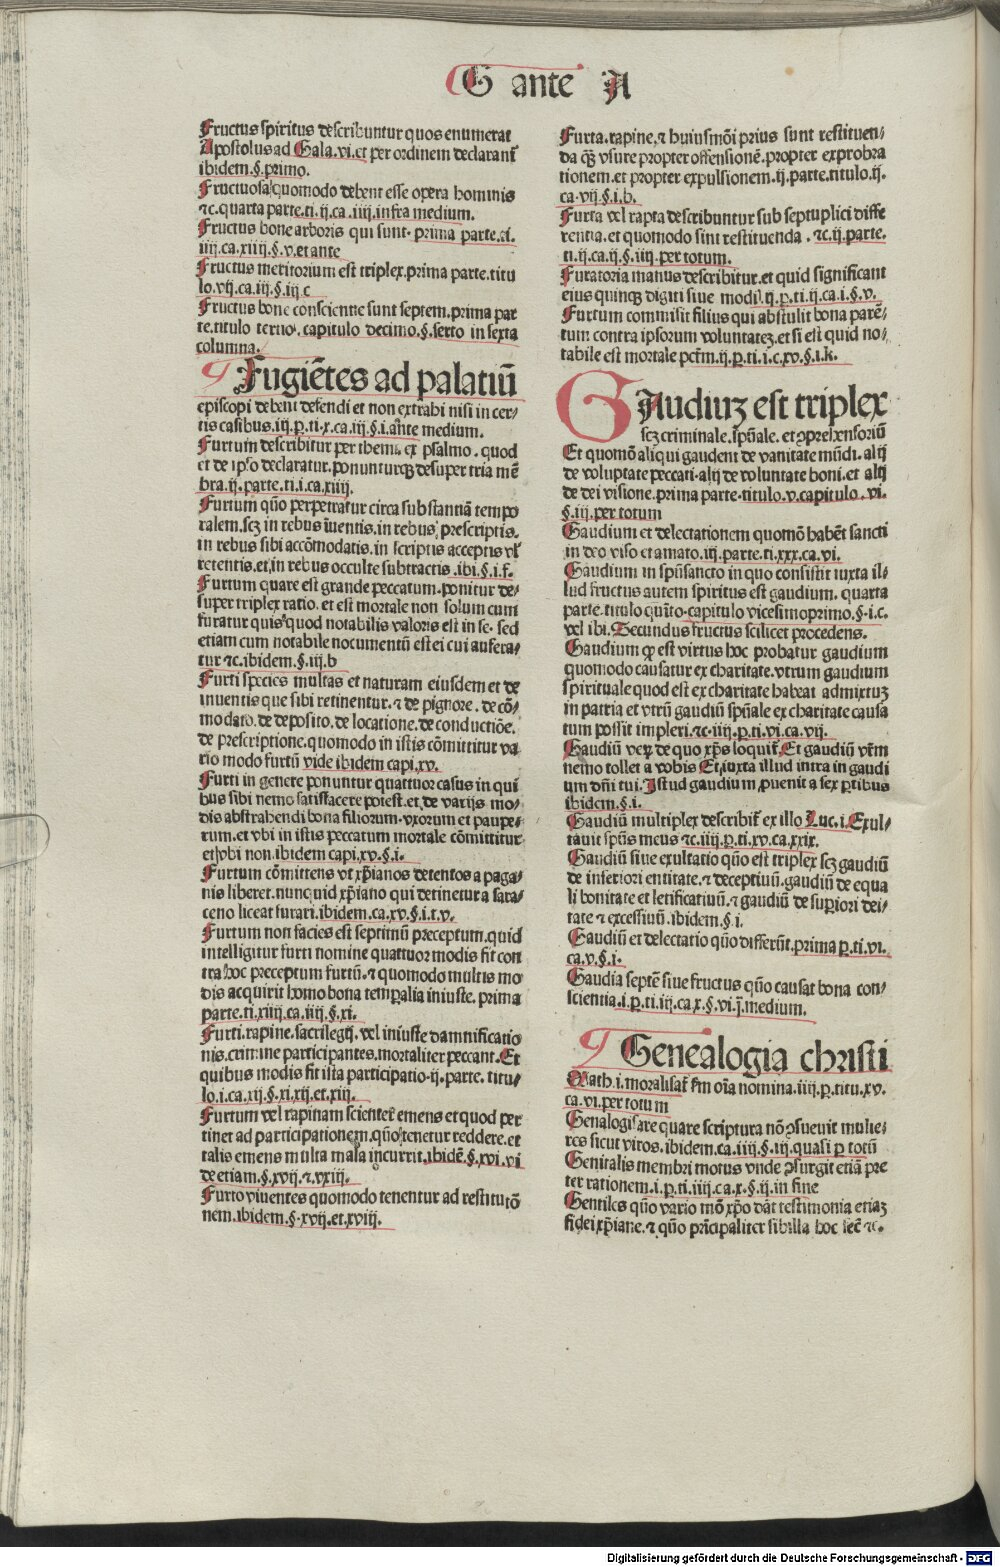 G ante A
Fructus spiritus describuntur quos enumerat
Apostolus ad Gala.vi.et per ordinem declarant̄
ibidem.§.primo.
Fructuosa quomodo debent esse opera hominis
⁊c.quarta parte.ti.ij.ca.iiij.infra medium.
Fructus bone arboris qui sunt. prima parte.ti.
iiij.ca.xiiij.§.v.et ante
Fructus meritorium est triplex.prima parte.titu
lo.vij.ca.iij.§.iij c
Fructus bone conscientie sunt septem.prima par
te.titulo tertio. capitulo decimo.§.serto in sexta
columna.
Fugiētes ad palatiū
episcopi debent defendi et non extrahi nisi in cer-
tis casibus.iij.p.ti.x.ca.iij.§.i.ante medium.
Furtum describitur per themi. ex psalmo. quod
et de ipso declaratur.ponunturq̃ desuper tria mē
bra.ij.parte.ti.i.ca.xiiij.
Furtum quō perpetratur circa substantiā tempo
ralem.scz in rebus īuentis.in rebus prescriptis.
in rebus sibi accōmodatis.in scriptis acceptis vl̄
retentis.et.in rebus occulte subtractis .ibi.§.i.f.
Furtum quare est grande peccatum.ponitur de-
super triplex ratio. et est mortale non solum cum
furatur quis quod notabilis valoris est in se. sed
etiam cum notabile nocumentū est ei cui aufera-
tur ⁊c.ibidem.§.iij.b
Furti species multas et naturam eiusdem et de
inuentis que sibi retinentur.⁊ de pignore. de cō-
modato.de deposito.de locatione.de conductiōe.
de prescriptione.quomodo in istis cōmittitur va
rio modo furtū vide ibidem capi.xv.
Furti in genere ponuntur quattuor casus in qui
bus sibi nemo satisfacere potest.et de varijs mo-
dis abstrahendi bona filiorum.vxorum et paupe-
rum.et vbi in istis peccatum mortale cōmittitur
et vbi non.ibidem capi.xv.§.i.
Furtum cōmittens vt xp̄ianos detentos a paga-
nis liberet.nunquid xp̄iano qui detinetur a sara-
ceno liceat furari.ibidem.ca.xv.§.i.t.v.
Furtum non facies est septimū preceptum.quid
intelligitur furti nomine quattuor modis fit con
tra hoc preceptum furtū.⁊ quomodo multis mo
dis acquirit homo bona temp̱alia iniuste. prima
parte.ti.xiiij.ca.iiij.§.xi.
Furti.rapine.sacrilegij. vel iniuste damnificatio
nis.crimine participantes.mortaliter peccant.Et
quibus modis fit ista participatio.ij.parte. titu-
lo.i.ca.xij.§.xi.xij.et.xiij.
Furtum vel rapinam scienter emens et quod per
tinet ad participationem.quō tenetur reddere.et
talis emens multa mala incurrit.ibidē.§.xvi.vi
de etiam.§.xvij.⁊.xviij.
Furto viuentes quomodo tenentur ad restitutō
nem.ibidem.§.xvij.et.xviij.
Furta.rapine.⁊ huiusmōi prius sunt restituen-
da q̄ȝ vsure propter offensionē.propter exprobra
tionem.et propter expulsionem.ij.parte.titulo.ij.
ca.vij.§.i.b.
Furta vel rapta describuntur sub septuplici diffe
rentia.et quomodo sint restituenda . ⁊c.ij.parte.
ti.ij.ca.ij.§.iiij.per totum.
Furatoria manus describitur.et quid significant
eius quinq̃ digiti siue modi.ij.p.ti.ij.ca.i.§.v.
Furtum commisit filius qui abstulit bona parē-
tum contra ipsorum voluntateȝ.et si est quid no-
tabile est mortale pctm̄.ij.p.ti.i.c.xv.§.i.k.
GAudiuȝ est triplex
scȝ criminale.spūale.et ↄprehensoriū
Et quomō aliqui gaudent de vanitate mūdi.alij
de voluptate peccati.alij de voluntate boni.et alij
de dei visione.prima parte.titulo.v.capitulo. vi.
§.iij.per totum
Gaudium et delectationem quomō habēt sancti
in deo viso et amato.iij.parte.ti.xxx.ca.vi.
Gaudium in spūsancto in quo consistit iuxta il-
lud fructus autem spiritus est gaudium. quarta
parte.titulo quīto.capitulo vicesimoprimo.§.i.c.
vel ibi.Secundus fructus scilicet procedens.
Gaudium ꝙ est virtus hoc probatur gaudium
quomodo causatur ex charitate.vtrum gaudium
spirituale quod est ex charitate habeat admixtuȝ
in patria et vtrū gaudiū spūale ex charitate causa
tum possit impleri.⁊c.iiij.p.ti.vi.ca.vij.
Gaudiū veꝝ de quo xp̄s loquit̄.Et gaudiū vr̄m
nemo tollet a vobis Et.iuxta illud intra in gaudi
um dn̄i tui.Istud gaudium ꝓuenit a sex ꝑtibus
ibidem.§.i.
Gaudiū multiplex describit̄ ex illo Luc.i.Exul-
tauit spūs meus ⁊c.iiij.p.ti.xv.ca.xxix.
Gaudiū siue exultatio quō est triplex scȝ gaudiū
de inferiori entitate.⁊ deceptiuū.gaudiū de equa
li bonitate et letificatiuū.⁊ gaudiū de suꝑiori dei-
tate ⁊ excessiuū.ibidem.§ i.
Gaudiū et delectatio quō differūt.prima p.ti.vi.
ca.v.§.i.
Gaudia septē siue fructus quō causat bona con-
scientia.i.p.ti.iij.ca.x.§.vi.j̄.medium.
Genealogia christi
Math.i.moralisat̄ fm oīa nomina.iiij.p.titu.xv.
ca.vi.per totum
Genalogisare quare scriptura nō ↄsueuit mulie-
res sicut viros.ibidem.ca.iiij.§.iij.quasi ꝑ totū
Genitalis membri motus vnde ↄsurgit etiā pre
ter rationem.i.p.ti.iiij.ca.x.§.ij.in fine
Gentiles quō vario mō xp̄o dāt testimonia etiaȝ
fidei xp̄iane.⁊ quō prīcipaliter sibilla hoc fec̄ ⁊c.
Digitalisierung gefördert durch die Deutsche Forschungsgemeinschaft - DFG